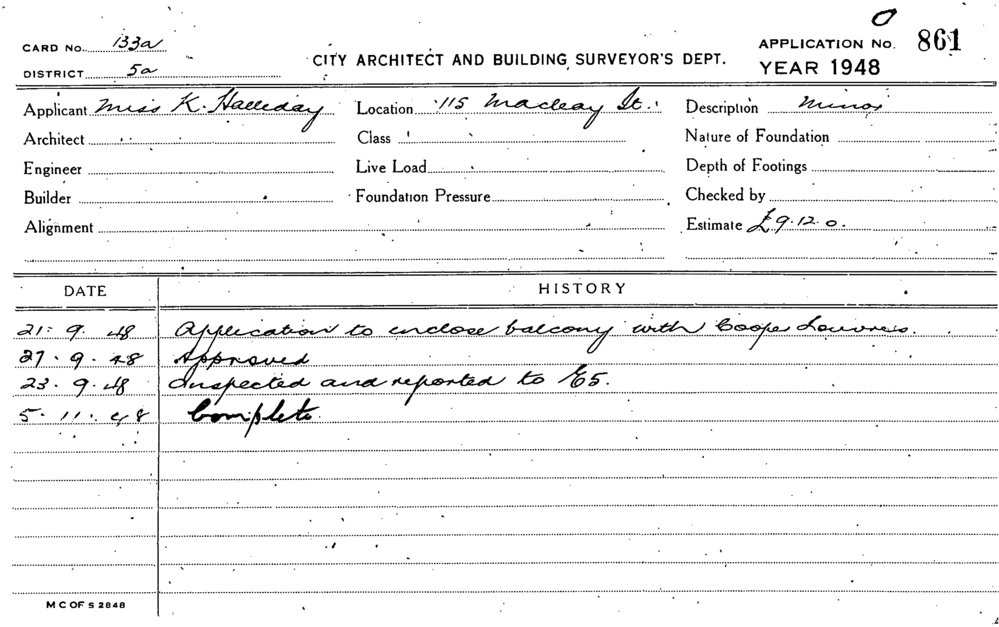 O
CARD No. 133a
DISTRICT 5a
CITY ARCHITECT AND BUILDING SURVEYOR'S DEPT.
APPLICATION No. 861
YEAR 1948
Applicant Miss K. Halliday Location 115 Macleay St. Description Minor
Architect Class Nature of Foundation
Engineer Live Load Depth of Footings
Builder Foundation Pressure Checked by
Alignment Estimate £9.12.0.
DATE HISTORY
21.9.48 Application to enclose balcony with Cooper Louvres.
27.9.48 Approved
23.9.48 Inspected and reported to E5.
5.11.48 Complete
M C OF S 2848